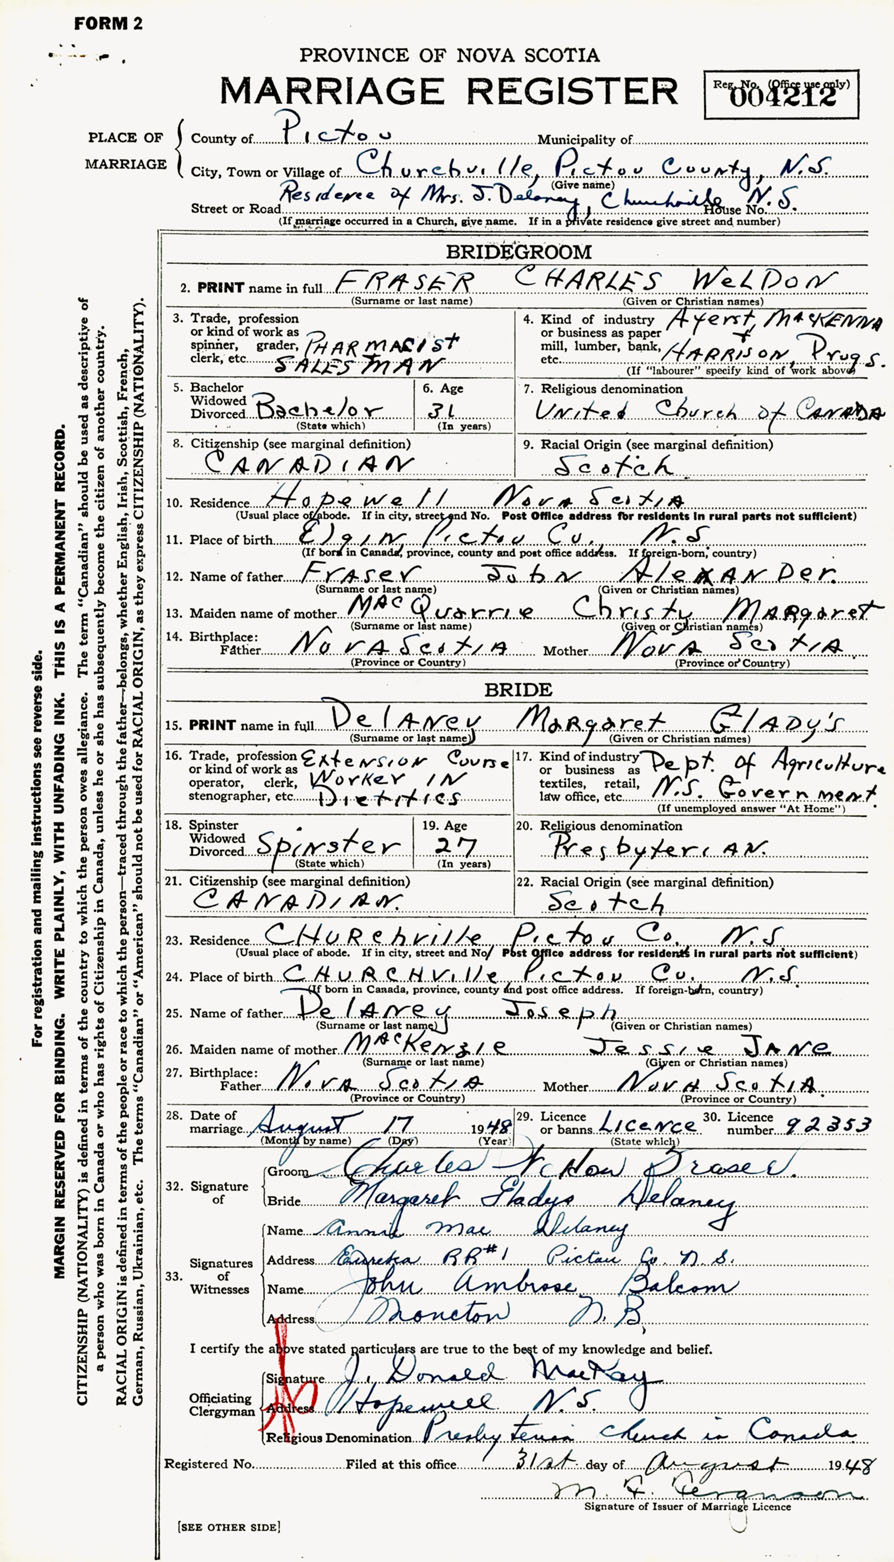 FORM 2
PROVINCE OF NOVA SCOTIA
MARRIAGE REGISTER
Reg. No. (Office use only)
004212
PLACE OF MARRIAGE
County of Pictou Municipality of
City, Town or Village of Churchville, Pictou County, N.S.
(Give name)
Residence of Mrs. J. Delaney, Churchville N.S.
Street or Road House No.
(If marriage occurred in a Church, give name. If in a private residence give street and number)
BRIDEGROOM
2. PRINT name in full FRASER CHARLES WeLDON
(Surname or last name) (Given or Christian names)
3. Trade, profession or kind of work as spinner, grader, clerk, etc. PHARMACIST SALESMAN
4. Kind of industry or business as paper mill, lumber, bank, etc. Ayerst, MacKENNA + HARRISON, Drugs.
(If "labourer" specify kind of work above)
5. Bachelor Widowed Divorced Bachelor
(State which)
6. Age 31
(In years)
7. Religious denomination
United Church of CANADA
8. Citizenship (see marginal definition)
CANADIAN
9. Racial Origin (see marginal definition)
Scotch
10. Residence Hopewell Nova Scotia
(Usual place of abode. If in city, street and No. Post Office address for residents in rural parts not sufficient)
11. Place of birth Elgin, Pictou Co. N.S
(If born in Canada, province, county and post office address. If foreign-born, country)
12. Name of father Fraser John AlexANDer.
(Surname or last name) (Given or Christian names)
13. Maiden name of mother MacQuarrie Christy MARgaret
(Surname or last name) (Given or Christian names)
14. Birthplace:
Father NovA ScotiA Mother NovA ScotiA
(Province or Country) (Province or Country)
BRIDE
15. PRINT name in full DelANey MARgaret GlADy's
(Surname or last name) (Given or Christian names)
16. Trade, profession or kind of work as operator, clerk, stenographer, etc. Extension Course Worker IN Dietitics
17. Kind of industry or business as textiles, retail, law office, etc. Dept. of Agriculture N.S. Government.
(If unemployed answer "At Home")
18. Spinster Widowed Divorced Spinster
(State which)
19. Age 27
(In years)
20. Religious denomination
PresbyteriAN.
21. Citizenship (see marginal definition)
CANADIAN.
22. Racial Origin (see marginal definition)
Scotch
23. Residence CHURchville Pictou Co. N.S.
(Usual place of abode. If in city, street and No. Post Office address for residents in rural parts not sufficient)
24. Place of birth CHURCHville Pictou Co. N.S.
(If born in Canada, province, county and post office address. If foreign-born, country)
25. Name of father DelANey Joseph
(Surname or last name) (Given or Christian names)
26. Maiden name of mother MacKenzie Jessie JANe
(Surname or last name) (Given or Christian names)
27. Birthplace:
Father NovA ScotiA Mother NovA ScotiA
(Province or Country) (Province or Country)
28. Date of marriage August 17 1948
(Month by name) (Day) (Year)
29. Licence or banns Licence
(State which)
30. Licence number 92353
32. Signature of
Groom Charles Weldon Fraser.
Bride Margaret Gladys Delaney
33. Signatures of Witnesses
Name Annie Mae Delaney
Address Eureka RR#1 Pictou Co. N.S.
Name John Ambrose Balcom
Address Moncton N.B.
I certify the above stated particulars are true to the best of my knowledge and belief.
Officiating Clergyman
Signature J. Donald MacKay
Address Hopewell N.S.
Religious Denomination Presbyterian Church in Canada
Registered No. Filed at this office 31st day of August 1948
M. F. Ferguson
Signature of Issuer of Marriage Licence
[SEE OTHER SIDE]
For registration and mailing instructions see reverse side.
MARGIN RESERVED FOR BINDING. WRITE PLAINLY, WITH UNFADING INK. THIS IS A PERMANENT RECORD.
CITIZENSHIP (NATIONALITY) is defined in terms of the country to which the person owes allegiance. The term "Canadian" should be used as descriptive of
a person who was born in Canada or who has rights of Citizenship in Canada, unless he or she has subsequently become the citizen of another country.
RACIAL ORIGIN is defined in terms of the people or race to which the person—traced through the father—belongs, whether English, Irish, Scottish, French,
German, Russian, Ukrainian, etc. The terms "Canadian" or "American" should not be used for RACIAL ORIGIN, as they express CITIZENSHIP (NATIONALITY).